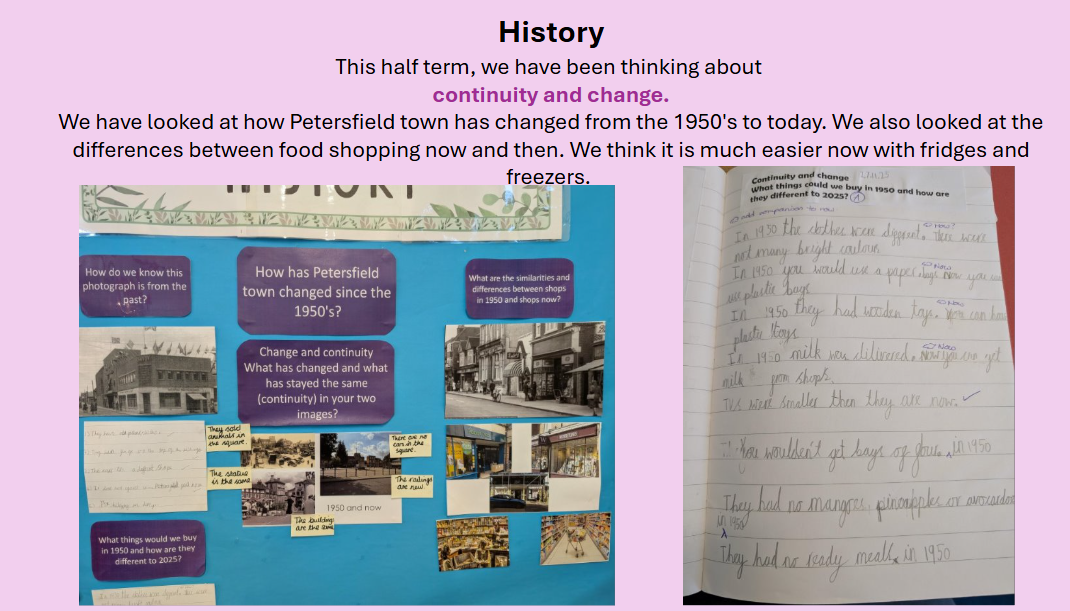 History
This half term, we have been thinking about
continuity and change.
We have looked at how Petersfield town has changed from the 1950's to today. We also looked at the
differences between food shopping now and then. We think it is much easier now with fridges and
freezers.
HISTORY
How do we know this
photograph is from the
past?
How has Petersfield
town changed since the
1950's?
What are the similarities and
differences between shops
in 1950 and shops now?
Change and continuity
What has changed and what
has stayed the same
(continuity) in your two
images?
They sold
animals in
the square.
The statue
is the same
There are no
cars in the
square.
The railings
are new.
1950 and now
The buildings
are the same
What things would we buy
in 1950 and how are they
different to 2025?
Continuity and change
What things could we buy in 1950 and how are
they different to 2025?
add comparison to now
In 1950 the clothes were different. There were
How?
not many bright colours
In 1950 you would use a paper bag. Now you
Now
use plastic bags
In 1950 they had wooden toys. can have
Now
plastic toys.
In 1950 milk was delivered. Now you can get
Now
milk from shops.
TVs were smaller then they are now.
You wouldn't get bags of in 1950
They had no mangoes, pineapples or avocardos
in 1950
They had no ready meals in 1950